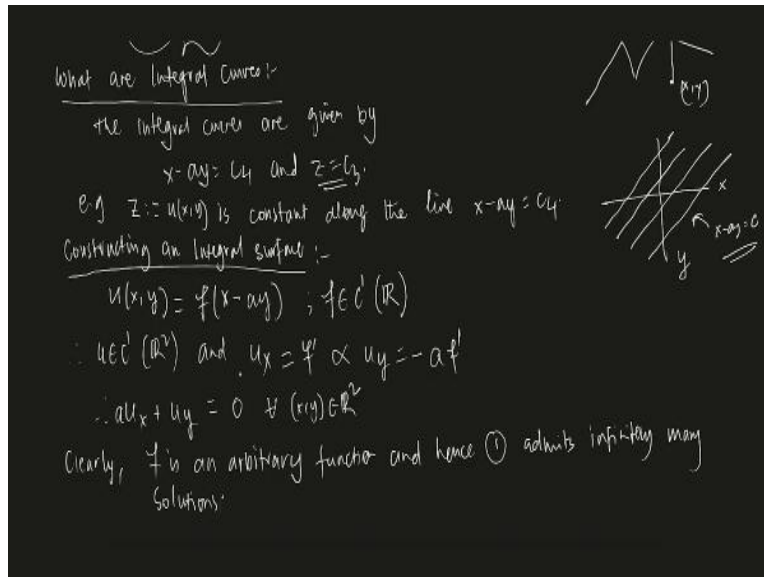 What are Integral Curves:-
(x,y)
the integral curves are given by
x-ay = C4 and z = C3.
e.g z := u(x,y) is constant along the line x-ay = C4.
x
x-ay = C
y
Constructing an Integral surface :-
u(x,y) = f(x-ay) ; f∈C'(ℝ)
∴ u∈C'(ℝ²) and u_x = f' & u_y = -a f'
∴ au_x + u_y = 0 ∀ (x,y)∈ℝ²
Clearly, f is an arbitrary function and hence ① admits infinitely many
solutions.